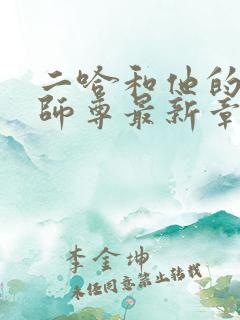 二哈和他的
師尊最新章
李金坤
未经同意禁止转载